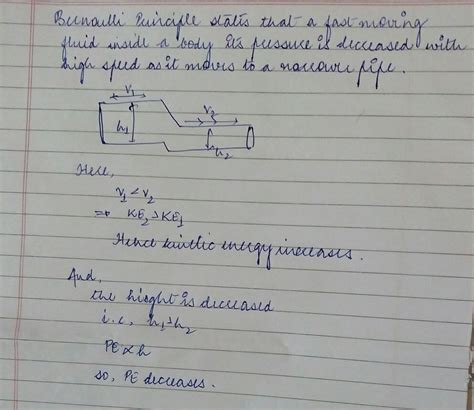 Bernoulli Principle states that a fast moving
fluid inside a body its pressure is decreased with
high speed as it moves to a narrower pipe.
V1
V2
h1
h2
Here,
v1 < v2
=> KE2 > KE1
Hence kinetic energy increases.
And,
the hieght is decreased
i.e, h1 > h2
PE ∝ h
so, PE decreases.